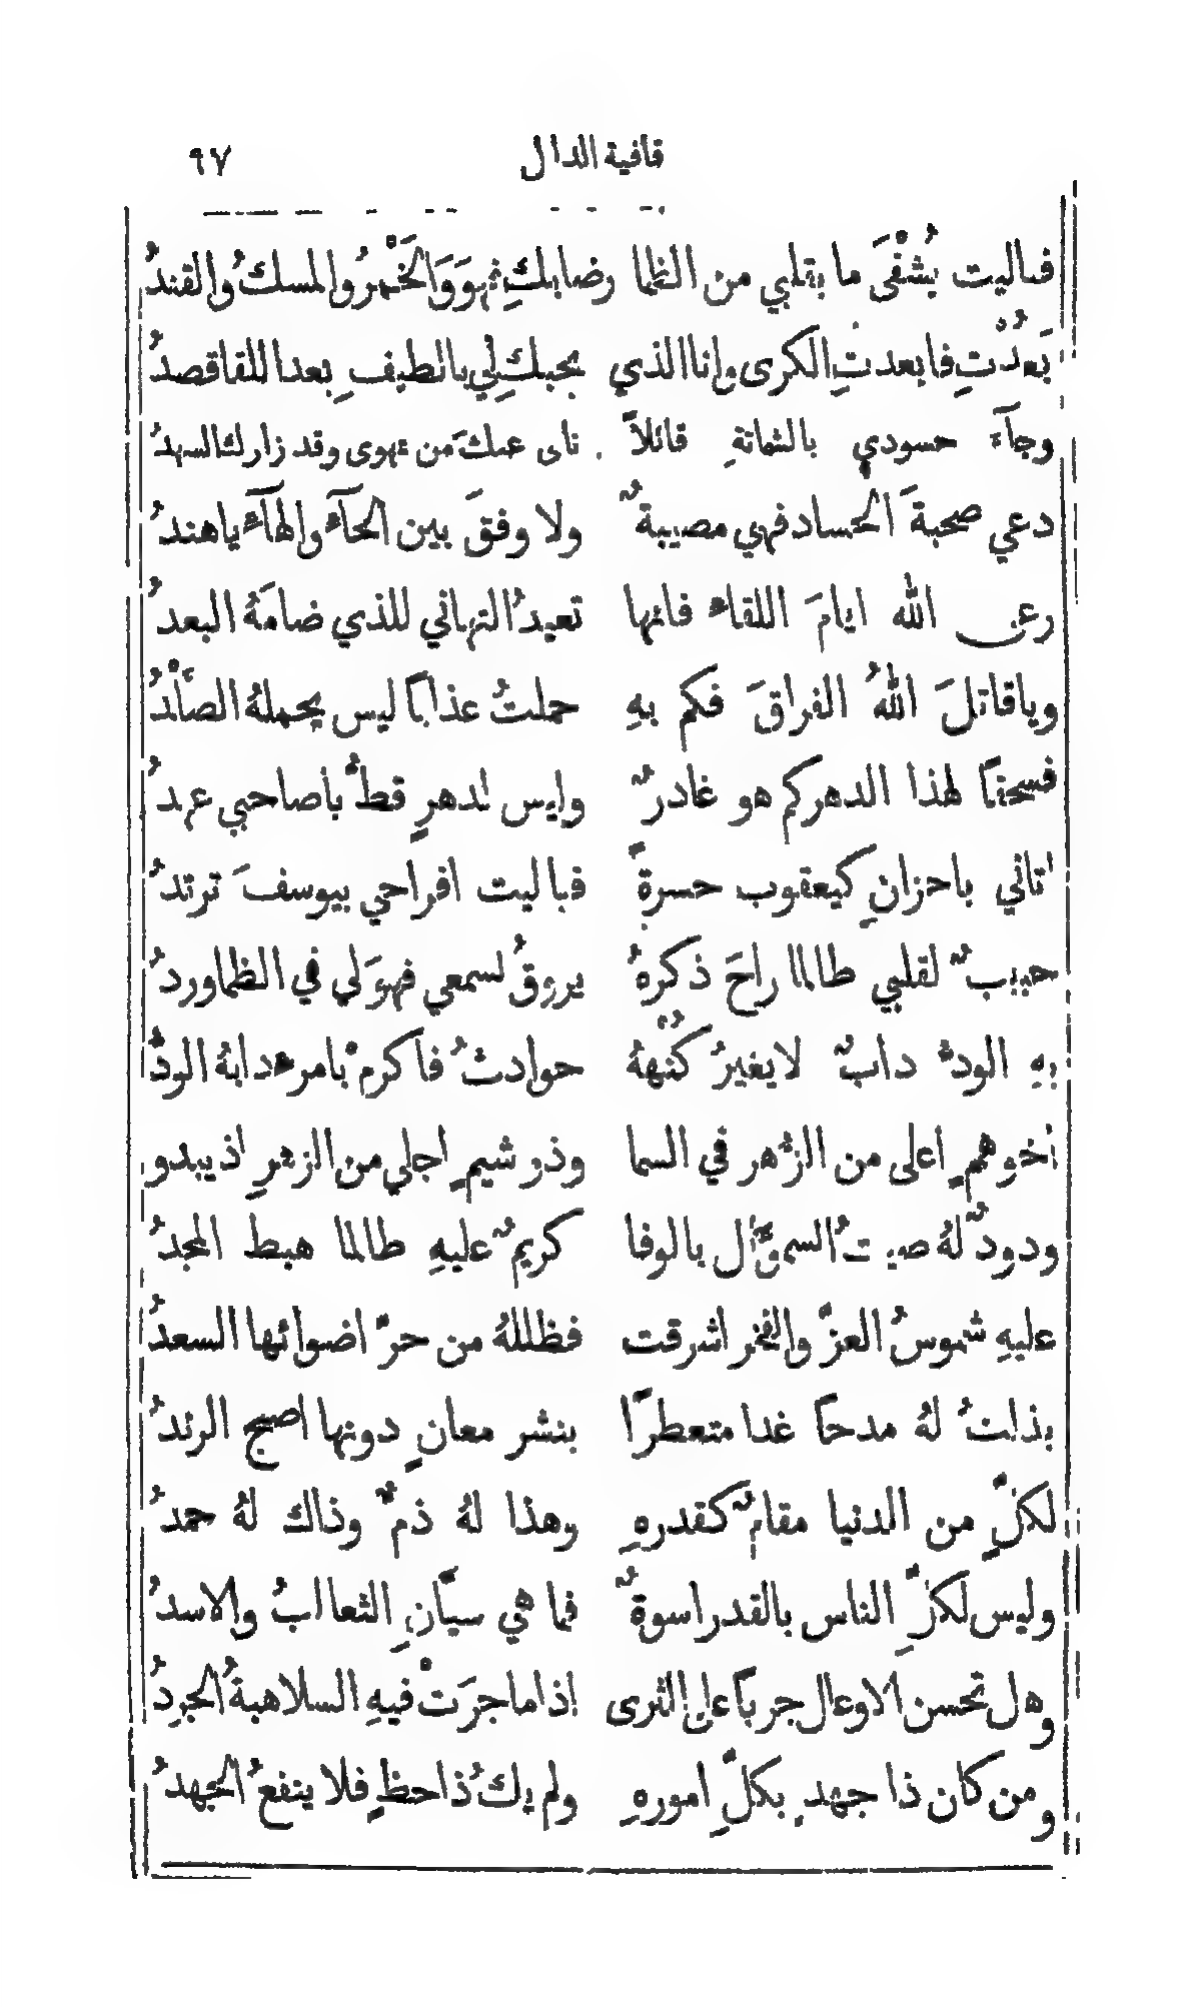 قافية الدال ٩٧
فياليت يُشْفَى ما بقلبي من الظما رضابكِ فهوَ وَالخَمْرُ والمسكُ والقندُ
بَعُدْتِ فابعدتِ الكرى وانا الذي بحبكِ لي بالطيفِ بعد اللقا قصدُ
وجآءَ حسودي بالشماتةِ قائلاً نأى عنكَ من تهوى وقد زارك السهدُ
دعي صحبةَ الحساد فهي مصيبةٌ ولا وفقَ بين الحآء والهآء يا هندُ
رعى الله ايامَ اللقاء فانها تعيدُ التهاني للذي ضامَهُ البعدُ
ويا قاتلَ اللهُ الفراقَ فكم بهِ حملتُ عذابًا ليس يحملهُ الصَّلْدُ
فسحقًا لهذا الدهر كم هو غادرٌ وليس لدهرٍ قطُّ يا صاحبي عهدُ
اتاني باحزانٍ كيعقوب حسرةً فيا ليت افراحي بيوسفَ ترتدُّ
حبيبٌ لقلبي طالما راحَ ذكرهُ يروقُ لسمعي فهوَ لي في الظما وردُ
بهِ الودُّ دابٌ لا يغيرُ كُنْهَهُ حوادثُ فاكرمْ بامرء دابهُ الودُّ
اخو هممٍ اعلى من الزُّهر في السما وذو شيمٍ اجلى من الزهرِ اذ يبدو
ودودٌ لهُ صيتُ السموَّل بالوفا كريمٌ عليهِ طالما هبط المجدُ
عليهِ شموسُ العزِّ والفخر اشرقت فظللهُ من حرِّ اضوائها السعدُ
بذلتُ لهُ مدحًا غدا متعطرًا بنشر معانٍ دونها اصبح الرندُ
لكلٍّ من الدنيا مقامٌ كقدرهِ وهذا لهُ ذمٌّ وذاك لهُ حمدُ
وليس لكلِّ الناس بالقدر اسوةٌ فما هي سيَّانِ الثعالبُ والاسدُ
وهل تحسن الاوعال جريًا على الثرى اذا ما جرَتْ فيهِ السلاهبةُ الجردُ
ومن كان ذا جهدٍ بكلِّ امورهِ ولم يكُ ذا حظٍ فلا ينفعُ الجهدُ